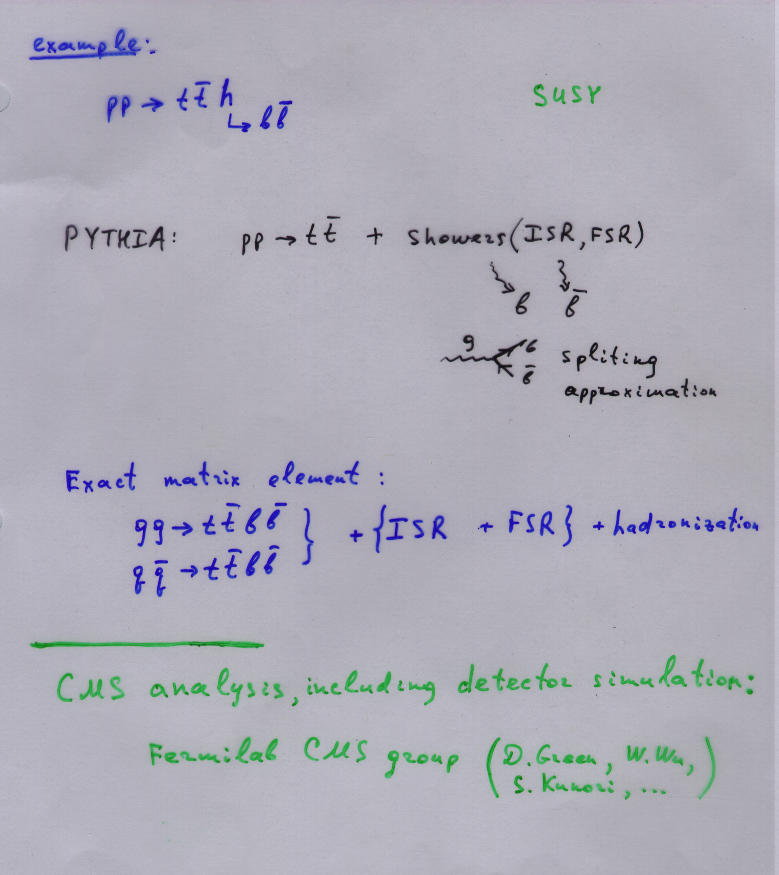 example:
pp → t t̄ h
↳ b b̄
SUSY
PYTHIA: pp → t t̄ + Showers (ISR, FSR)
b b̄
g b b̄ spliting
approximation
Exact matrix element:
gg → t t̄ b b̄ } + {ISR + FSR} + hadronization
q q̄ → t t̄ b b̄
CMS analysis, including detector simulation:
Fermilab CMS group (D. Green, W. Wu,
S. Kunori, ...)